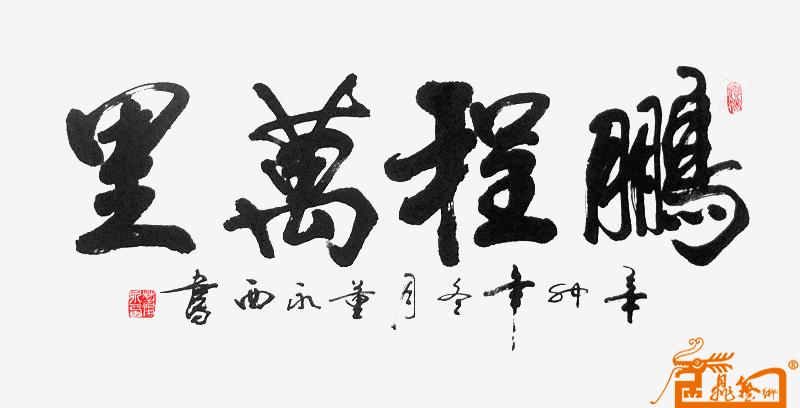 鵬程萬里
辛卯年冬月董永西書